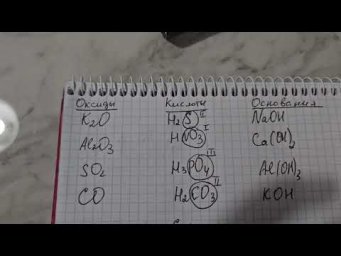 Оксиды Кислоты Основания
K₂O H₂S II NaOH
Al₂O₃ HNO₃ I Ca(OH)₂
SO₂ H₃PO₄ III Al(OH)₃
CO H₂CO₃ II KOH